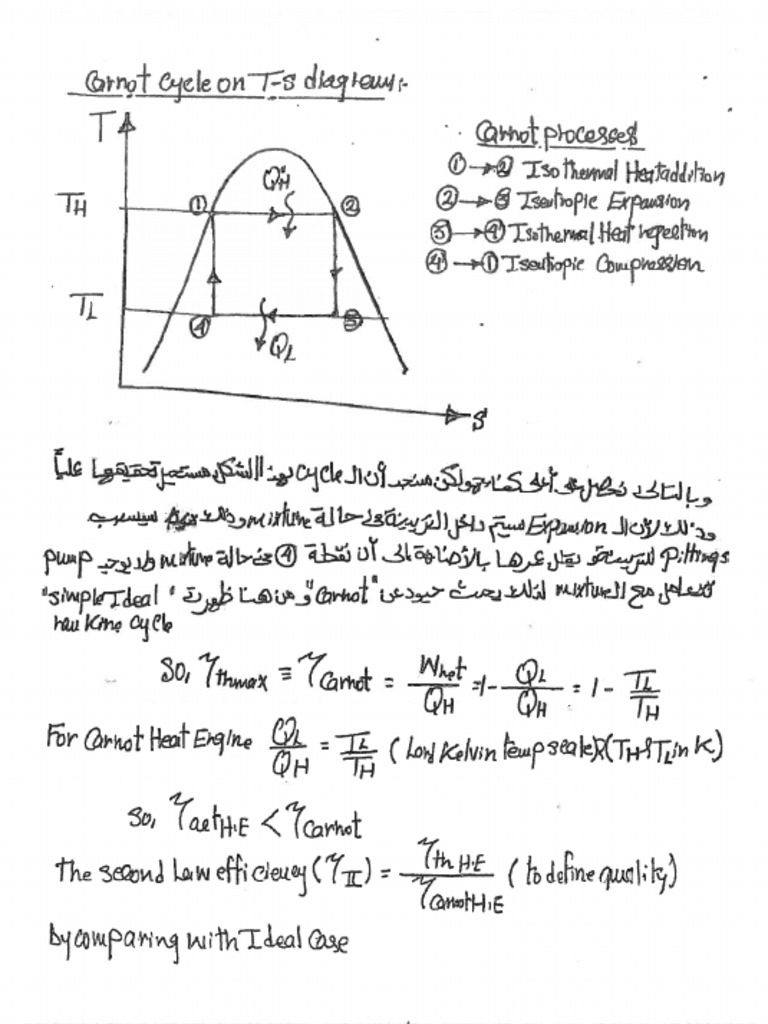 Carnot cycle on T-S diagram:-
T
Carnot processes
①→② Isothermal Heat addition
②→③ Isentropic Expansion
③→④ Isothermal Heat rejection
④→① Isentropic Compression
TH
①
QH
②
TL
④
QL
③
S
وبالتالى نحصل على أعلى كفاءة ولكن سنجد أن الـ cycle بهذا الشكل مستحيل تحقيقها عملياً
وذلك لأن الـ Expansion سيتم داخل التربينة فى حالة mixture وذلك سيسبب
pittings للتربينة و يقلل عمرها بالأضافة الى أن نقطة ④ فى حالة mixture ولا يوجد pump
تتعامل مع الـ mixture لذلك يحدث حيود عن "Carnot" و من هنا ظهرت "simple Ideal
rankine cycle
So, ηthmax ≡ ηCarnot = Wnet/QH = 1- QL/QH = 1 - TL/TH
For Carnot Heat Engine QL/QH = TL/TH (Lord Kelvin temp scale)(TH & TL in K)
So, ηact H.E < ηCarnot
The second Law efficiency (ηII) = ηth H.E/ηCarnot H.E (to define quality)
by comparing with Ideal Case